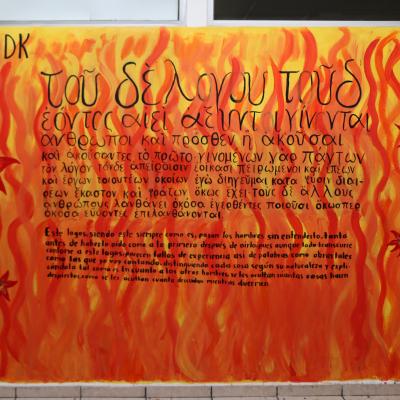 DK
τοῦ δὲ λόγου τοῦδ
ἐόντος αἰεὶ ἀξύνετοι γίνονται
ἄνθρωποι καὶ πρόσθεν ἢ ἀκοῦσαι
καὶ ἀκούσαντες τὸ πρῶτο γινομένων γὰρ πάντων
τὸν λόγον τόνδε ἀπείροισιν ἐοίκασι πειρώμενοι καὶ ἐπέων
καὶ ἔργων τοιουτέων ὁκοίων ἐγὼ διηγεῦμαι κατὰ φύσιν διαι-
ρέων ἕκαστον καὶ φράζων ὅκως ἔχει τοὺς δὲ ἄλλους
ἀνθρώπους λανθάνει ὁκόσα ἐγερθέντες ποιοῦσι ὅκωσπερ
ὁκόσα εὕδοντες ἐπιλανθάνονται.
Este logos, siendo este siempre como es, pasan los hombres sin entenderlo, tanto
antes de haberlo oído como a lo primero después de oírlo; pues aunque todo transcurre
conforme a este logos, parecen faltos de experiencia así de palabras como obras tales
como las que yo voy contando, distinguiendo cada cosa según su naturaleza y expli-
cándola tal como es. En cuanto a los otros hombres, se les ocultan cuantas cosas hacen
despiertos, como se les ocultan cuanto descuidan mientras duermen.